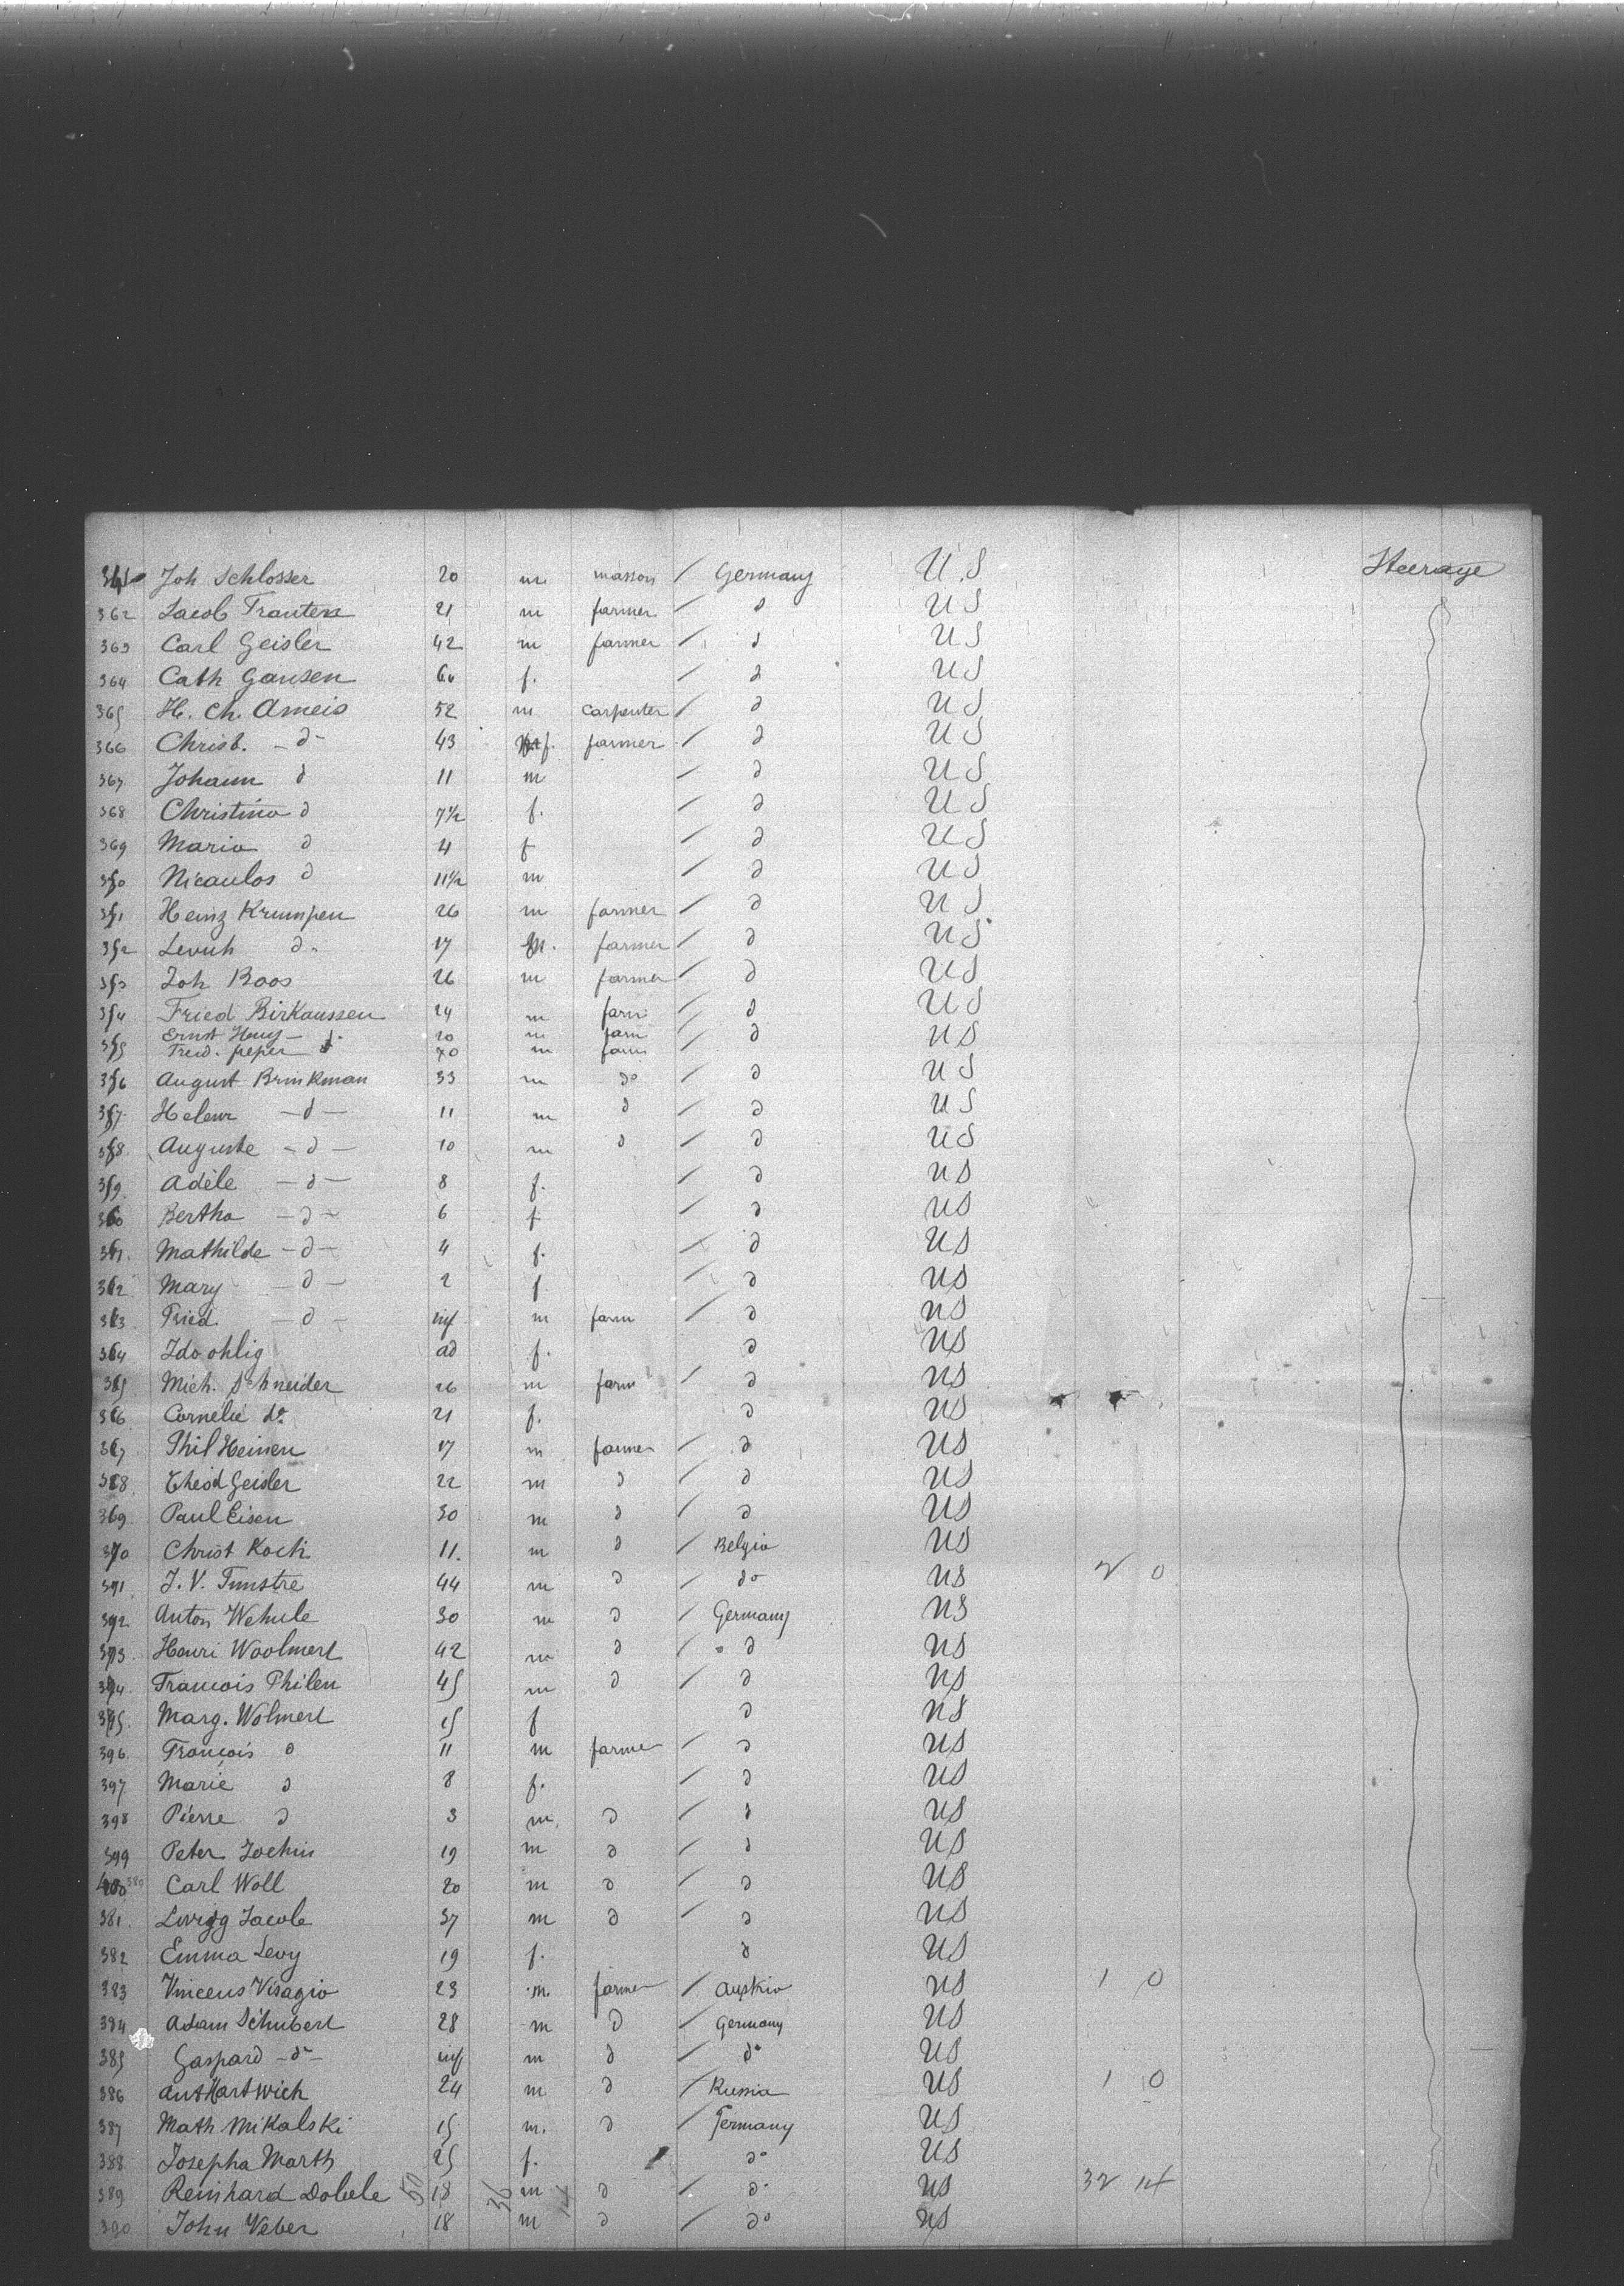 361 Joh Schlosser 20 m masson / Germany U.S Steerage
362 Jacob Trauten 21 m farmer / d U S
363 Carl Geisler 42 m farmer / d U S
364 Cath Gansen 60 f. / d U S
365 H. Ch. Ameis 52 m carpenter / d U S
366 Christ. - d - 43 f. farmer / d U S
367 Johann d 11 m / d U S
368 Christina d 7½ f. / d U S
369 Maria d 4 f / d U S
350 Nicaulos d 11½ m / d U S
351 Heinz Krumpen 26 m farmer / d U S
352 d. 17 m. farmer / d U S
353 Joh Boos 26 m farmer / d U S
354 Fried Birkaussen 24 m farm / d U S
Ernst Heuy - d. 20 m farm / d U S
355 Fred. peper d 40 m farm
356 August Brinkman 33 m do / d U S
357 Helene - d - 11 m d / d U S
358 Auguste - d - 10 m d / d U S
359 Adèle - d - 8 f. / d U S
360 Bertha - d - 6 f / d U S
361. Mathilde - d - 4 f. / d U S
362 Mary - d - 2 f / d U S
363 Fried. - d - inf m farm / d U S
364 Ida ohlig ad f. d U S
365 Mich. Schneider 26 m farm / d U S
366 Cornelie do 21 f. d U S
367 Phil Heinen 17 m farmer / d U S
368 Theod Geisler 22 m d / d U S
369 Paul Eisen 30 m d / d U S
370 Christ Koch 11. m d / Belgia U S
391 J. V. Tunstre 44 m d / do U S 2 0
392 Anton Wehule 30 m d / Germany U S
393 Henri Woolmert 42 m d / d U S
394. Francois Philen 45 m d / d U S
395. Marg. Wolmert 15 f d U S
396. François d 11 m farmer / d U S
397 Marie d 8 f. / d U S
398 Pierre d 3 m. d / d U S
399 Peter Jochin 19 m d / d U S
400 380 Carl Woll 20 m d / d U S
381. Jacob 37 m d / d U S
382 Emma Levy 19 f. d U S
383 Vincens Visagio 23 m farmer / Austria U S 1 0
384 Adam Schubert 28 m d / Germany U S
385 Gaspard - do - inf m d / do U S
386 Ant Hartwich 24 m d / Russia U S 1 0
387 Math Mikalski 15 m. d / Germany U S
388 Josepha Marth 25 f. / do U S
389 Reinhard Dobele 50 18 36 m 14 d / do U S 32 14
390 John Weber 18 m d / do U S